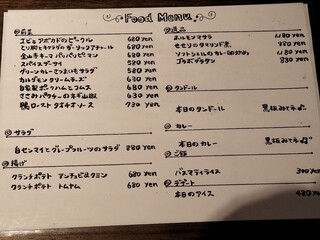 Food Menu
前菜
エビとアボカドのピークル 680 yen
とり肝とキクラゲのガーリックアチャール 680 yen
全山キーマ パパンピーマン 680 yen
スパイスザーサイ 580 yen
グリーンカレーさつまいもサラダ 580 yen
カルダモンクリームチーズ 630 yen
自家製ポークハムとコムス 680 yen
ささみパクチーのネギ山椒 630 yen
鴨ロースト タマネギソース 930 yen
サラダ
白センマイとグレープフルーツのサラダ 880 yen
揚げ
クランチポテト アンチョビクミン 680 yen
クランチポテト トムヤム 680 yen
逸品
ホルモンマサラ 1,180 yen
セセリのタマリンド煮 980 yen
1,180 yen
ゴラボグラタン 830 yen
タンドール
本日のタンドール 黒板みてネ
カレー
本日のカレー 黒板みてネ
ご飯
バスマティライス 300 yen
デザート
本日のアイス 480 yen